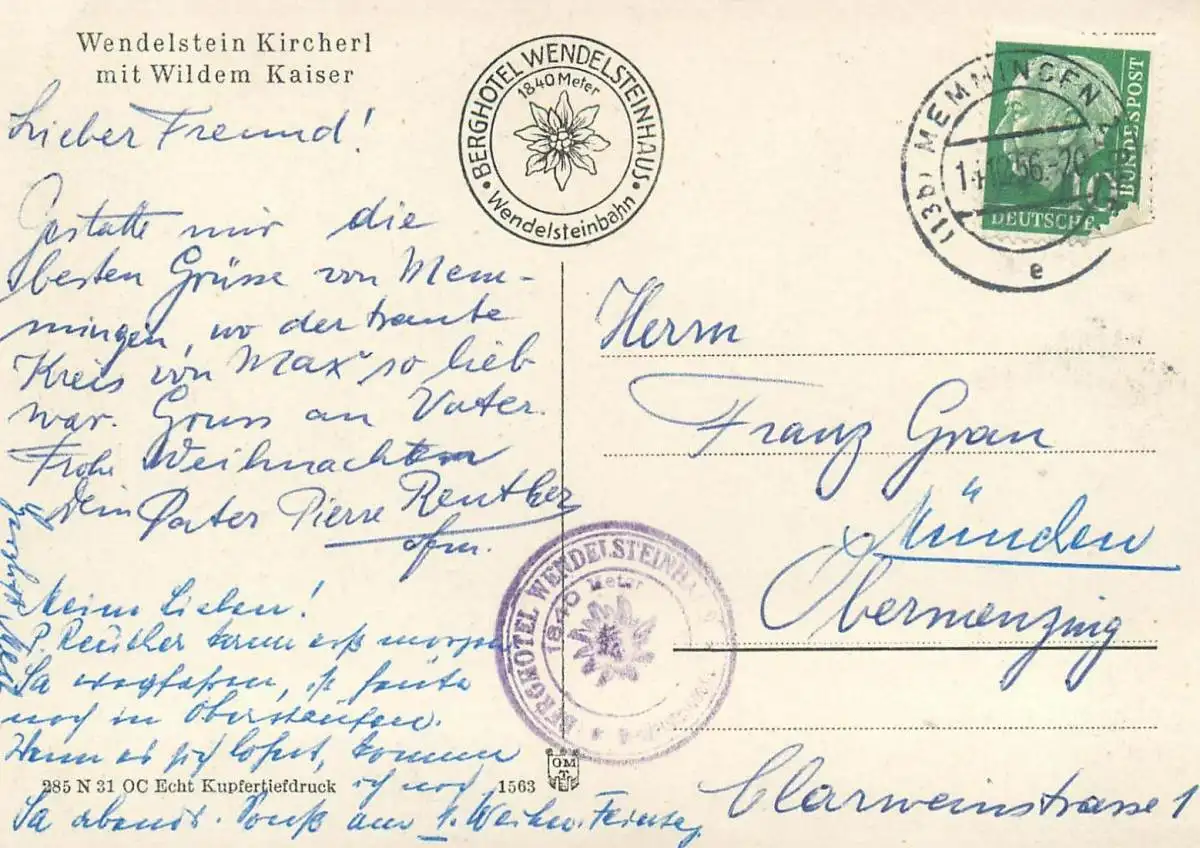 Wendelstein Kircherl
mit Wildem Kaiser
Lieber Freund!
Gestatte mir die
besten Grüsse von Mem-
mingen, wo der traute
Kreis von "Max" so lieb
war. Gruss an Vater.
Frohe Weihnachten
Dein Pater Pierre Reuther
ofm.
Meine Lieben!
P. Reuther kann erst morgen
Sa wegfahren, ist heute
noch in Oberstaufen.
Wenn es sich lohnt, komme
ich noch
Sa abends. Sonst am 1. Weihn.
285 N 31 OC Echt Kupfertiefdruck
1563
OM
BERGHOTEL WENDELSTEINHAUS
1840 Meter
Wendelsteinbahn
(13b) MEMMINGEN
56.-20
e
DEUTSCHE
BUNDESPOST
10
Herrn
Franz Grau
München
Obermenzing
Clarweinstrasse 1
BERGHOTEL WENDELSTEINHAUS
1840 Meter